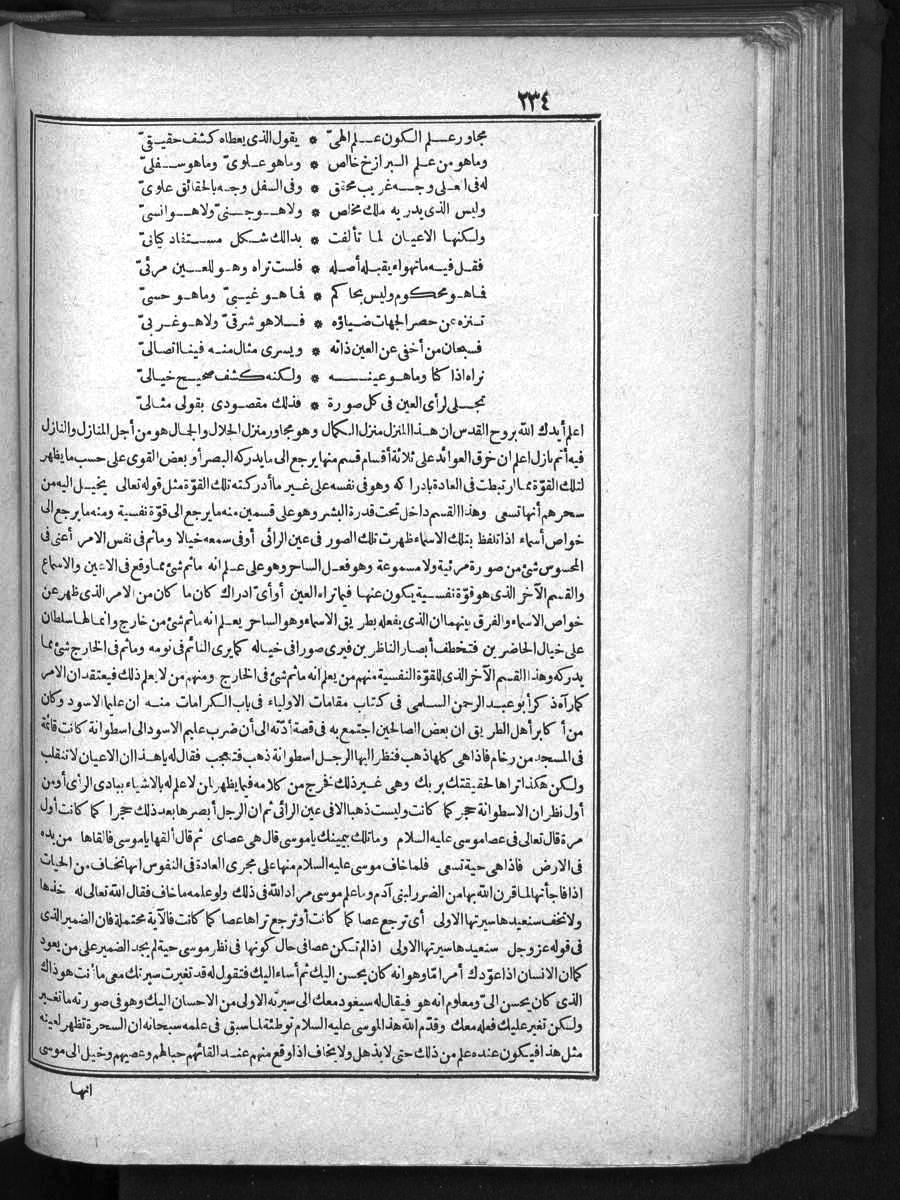 ٢٣٤
مجاور علم الكون علم الهىّ * يقول الذى يعطاه كشف حقيقىّ
وما هو من علم البرازخ خالص * وما هو علوىّ وما هو سفلىّ
له فى العلى وجه غريب محقق * وفى السفل وجه بالحقائق علوىّ
وليس الذى يدريه ملك مخلص * ولا هو جنىّ ولا هو انسىّ
ولكنها الاعيان لما تألفت * بدا لك شكل مستفاد كيانىّ
فقل فيه ما تهواه يقبله أصله * فلست تراه وهو للعين مرئىّ
فما هو محكوم وليس بحاكم * فما هو غيبىّ وما هو حسىّ
تنزه عن حصر الجهات ضياؤه * فلا هو شرقىّ ولا هو غربىّ
فسبحان من أخفى عن العين ذاته * ويسرى مثال منه فينا اتصالىّ
نراه اذا كنا وما هو عينه * ولكنه كشف صحيح خيالىّ
تجلى لرأى العين فى كل صورة * فذلك مقصودى بقولى مثالىّ
اعلم أيدك الله بروح القدس ان هذا المنزل منزل الكمال وهو مجاور منزل الجلال والجمال هو من أجل المنازل والنازل
فيه أتم نازل اعلم ان خرق العوائد على ثلاثة أقسام قسم منها يرجع الى ما يدركه البصر أو بعض القوى على حسب ما يظهر
لتلك القوّة مما ارتبطت فى العادة بادراكه وهو فى نفسه على غير ما أدركته تلك القوّة مثل قوله تعالى يخيل اليه من
سحرهم أنها تسعى وهذا القسم داخل تحت قدرة البشر وهو على قسمين منه ما يرجع الى قوّة نفسية ومنه ما يرجع الى
خواص أسماء اذا تلفظ بتلك الاسماء ظهرت تلك الصور فى عين الرائى أو فى سمعه خيالا وما ثم فى نفس الامر أعنى فى
المحسوس شئ من صورة مرئية ولا مسموعة وهو فعل الساحر وهو على علم انه ما ثم شئ مما وقع فى الاعين والاسماع
والقسم الآخر الذى هو قوّة نفسية يكون عنها فيما تراه العين أو أىّ ادراك كان ما كان من الامر الذى ظهر عن
خواص الاسماء والفرق بينهما ان الذى يفعله بطريق الاسماء وهو الساحر يعلم انه ما ثم شئ من خارج وانما لها سلطان
على خيال الحاضرين فتخطف أبصار الناظرين فيرى صورا فى خياله كما يرى النائم فى نومه وما ثم فى الخارج شئ مما
يدركه وهذا القسم الآخر الذى للقوّة النفسية منهم من يعلم انه ما ثم شئ فى الخارج ومنهم من لا يعلم ذلك فيعتقد ان الامر
كما رآه ذكر أبو عبد الرحمن السلمى فى كتاب مقامات الاولياء فى باب الكرامات منه ان عليما الاسود وكان
من أكابر أهل الطريق ان بعض الصالحين اجتمع به فى قصة أدّته الى أن ضرب عليم الاسود الى اسطوانة كانت قائمة
فى المسجد من رخام فاذا هى كلها ذهب فنظر اليها الرجل اسطوانة ذهب فتعجب فقال له يا هذا ان الاعيان لا تنقلب
ولكن هكذا تراها لحقيقتك بربك وهى غير ذلك فخرج من كلامه فيما يظهر لمن لا علم له بالاشياء ببادى الرأى أو من
أول نظر ان الاسطوانة حجر كما كانت وليست ذهبا الا فى عين الرائى ثم ان الرجل أبصرها بعد ذلك حجرا كما كانت أول
مرة قال تعالى فى عصا موسى عليه السلام وما تلك بيمينك يا موسى قال هى عصاى ثم قال ألقها يا موسى فالقاها من يده
فى الارض فاذا هى حية تسعى فلما خاف موسى عليه السلام منها على مجرى العادة فى النفوس انها تخاف من الحيات
اذا فاجأتها لما قرن الله بها من الضرر لبنى آدم وما علم موسى مراد الله فى ذلك ولو علمه ما خاف فقال الله تعالى له خذها
ولا تخف سنعيدها سيرتها الاولى أى ترجع عصا كما كانت أو ترجع تراها عصا كما كانت فالآية محتملة فان الضمير الذى
فى قوله عز وجل سنعيدها سيرتها الاولى اذا لم تكن عصا فى حال كونها فى نظر موسى حية لم يجد الضمير على من يعود
كما ان الانسان اذا عوّدك أمرا ما وهو انه كان يحسن اليك ثم أساء اليك فتقول له قد تغيرت سيرتك معى ما أنت هو ذاك
الذى كان يحسن الىّ ومعلوم انه هو فيقال له سيعود معك الى سيرته الاولى من الاحسان اليك وهو فى صورته ما تغير
ولكن تغير عليك فعله معك وقدّم الله هذا لموسى عليه السلام توطئة لما سبق فى علمه سبحانه ان السحرة تظهر لعينه
مثل هذا فيكون عنده علم من ذلك حتى لا يذهل ولا يخاف اذا وقع منهم عند القائهم حبالهم وعصيهم وخيل الى موسى
انها